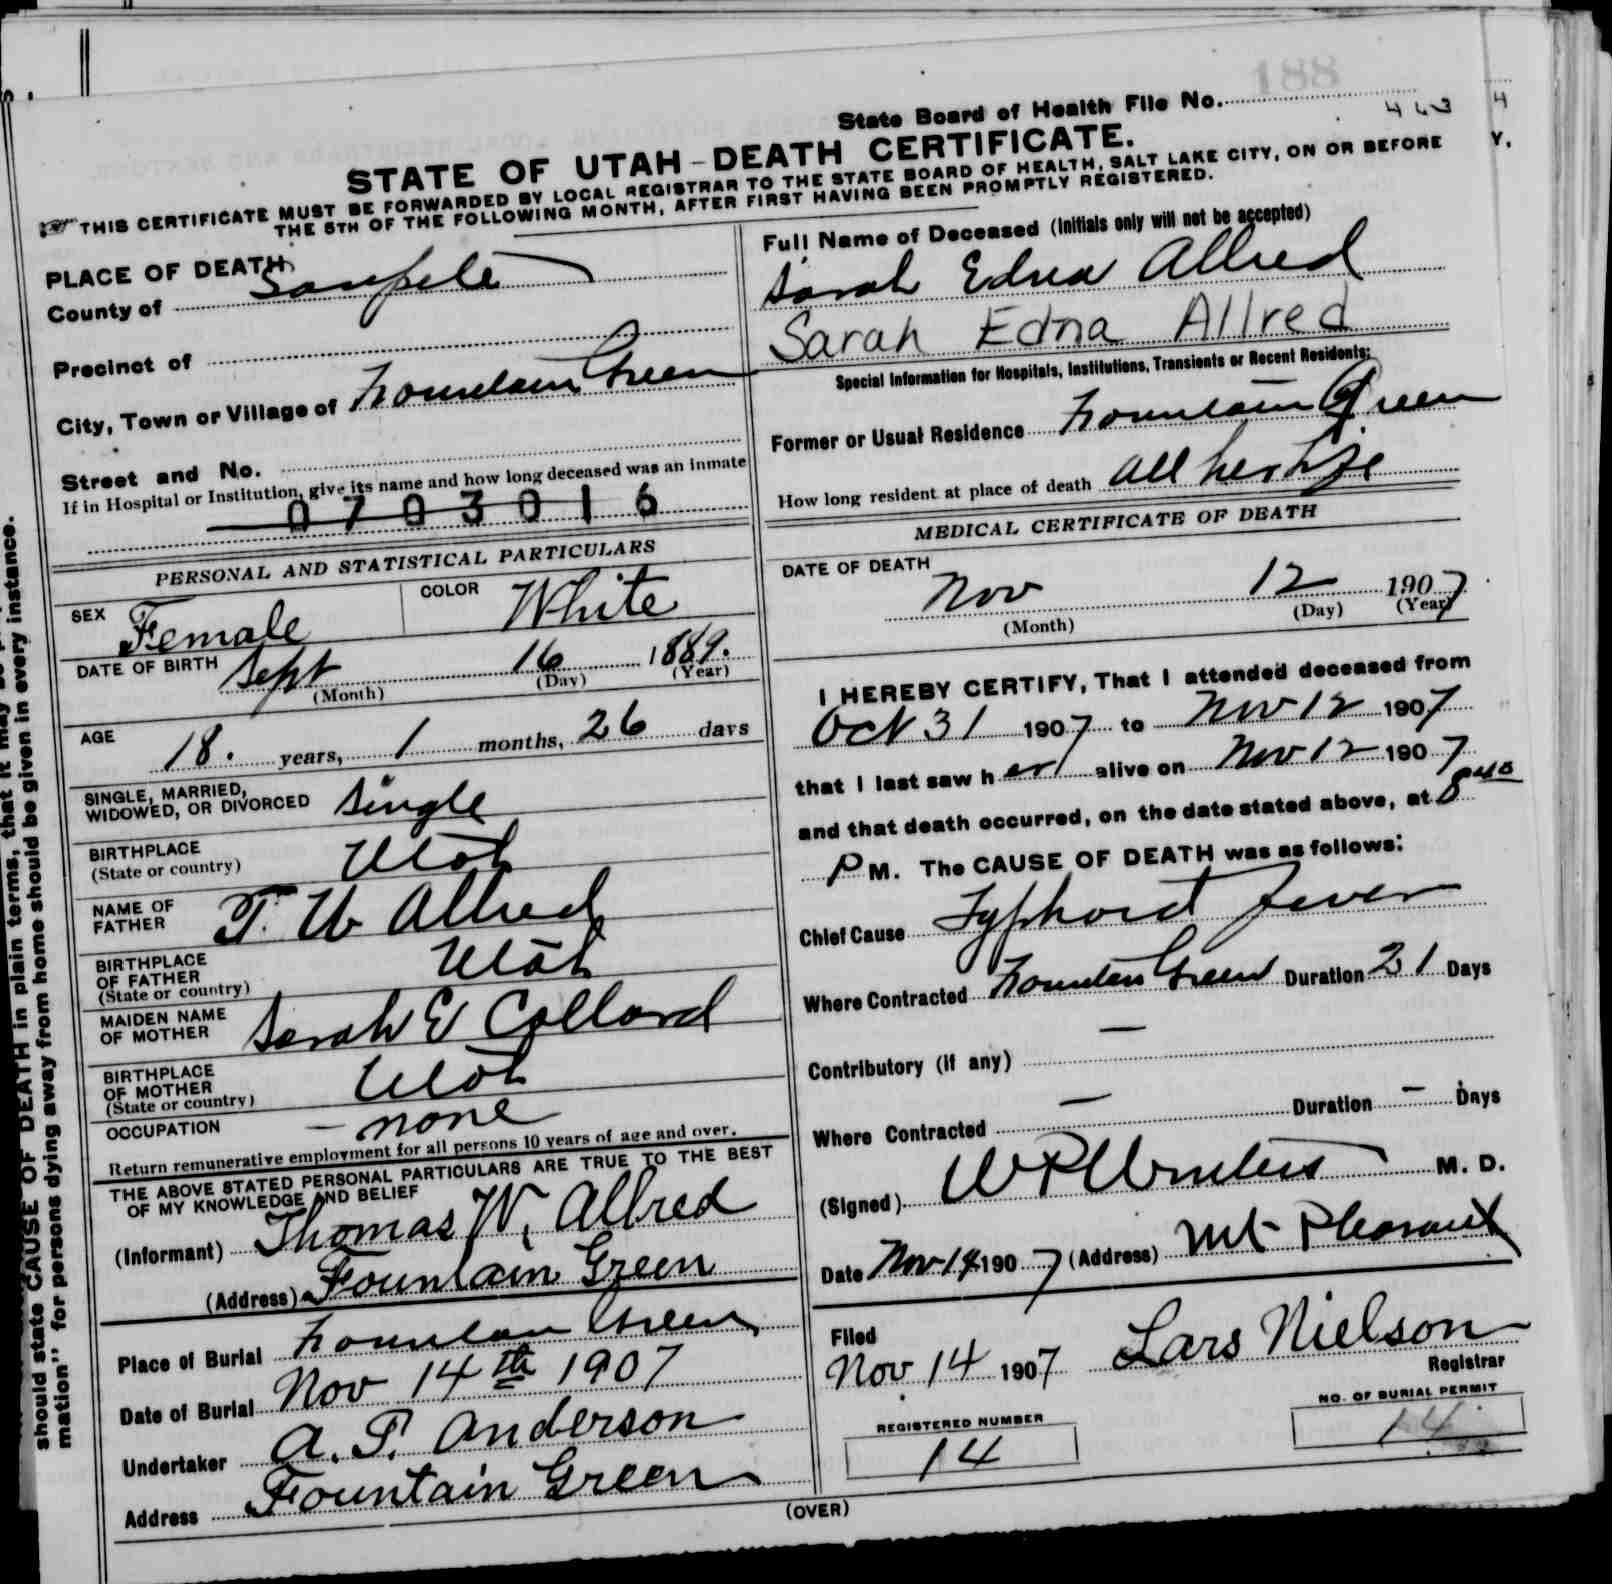 188
State Board of Health File No. 463
STATE OF UTAH - DEATH CERTIFICATE.
THIS CERTIFICATE MUST BE FORWARDED BY LOCAL REGISTRAR TO THE STATE BOARD OF HEALTH, SALT LAKE CITY, ON OR BEFORE
THE 5TH OF THE FOLLOWING MONTH, AFTER FIRST HAVING BEEN PROMPTLY REGISTERED.
PLACE OF DEATH
County of Sanpete
Precinct of
City, Town or Village of Fountain Green
Street and No.
If in Hospital or Institution, give its name and how long deceased was an inmate
0703016
PERSONAL AND STATISTICAL PARTICULARS
SEX Female COLOR White
DATE OF BIRTH Sept 16 1889.
(Month) (Day) (Year)
AGE 18. years, 1 months, 26 days
SINGLE, MARRIED,
WIDOWED, OR DIVORCED Single
BIRTHPLACE
(State or country) Utah
NAME OF
FATHER T. W Allred
BIRTHPLACE
OF FATHER
(State or country) Utah
MAIDEN NAME
OF MOTHER Sarah E Collard
BIRTHPLACE
OF MOTHER
(State or country) Utah
OCCUPATION - none
Return remunerative employment for all persons 10 years of age and over.
THE ABOVE STATED PERSONAL PARTICULARS ARE TRUE TO THE BEST
OF MY KNOWLEDGE AND BELIEF
(Informant) Thomas W. Allred
(Address) Fountain Green
Place of Burial Fountain Green
Date of Burial Nov 14th 1907
Undertaker A. P. Anderson
Address Fountain Green
Full Name of Deceased (Initials only will not be accepted)
Sarah Edna Allred
Sarah Edna Allred
Special Information for Hospitals, Institutions, Transients or Recent Residents:
Former or Usual Residence Fountain Green
How long resident at place of death all her life
MEDICAL CERTIFICATE OF DEATH
DATE OF DEATH
Nov 12 1907
(Month) (Day) (Year)
I HEREBY CERTIFY, That I attended deceased from
Oct 31 1907 to Nov 12 1907
that I last saw her alive on Nov 12 1907
and that death occurred, on the date stated above, at 8 40
P M. The CAUSE OF DEATH was as follows:
Chief Cause Typhoid fever
Where Contracted Fountain Green Duration 21 Days
Contributory (if any) —
Where Contracted — Duration — Days
(Signed) M. D.
Date Nov 14 1907 (Address) Mt Pleasant
Filed
Nov 14 1907 Lars Nielson
Registrar
REGISTERED NUMBER
14
NO. OF BURIAL PERMIT
14
(OVER)
should state CAUSE OF DEATH in plain terms, that it may be
mation" for persons dying away from home should be given in every instance.